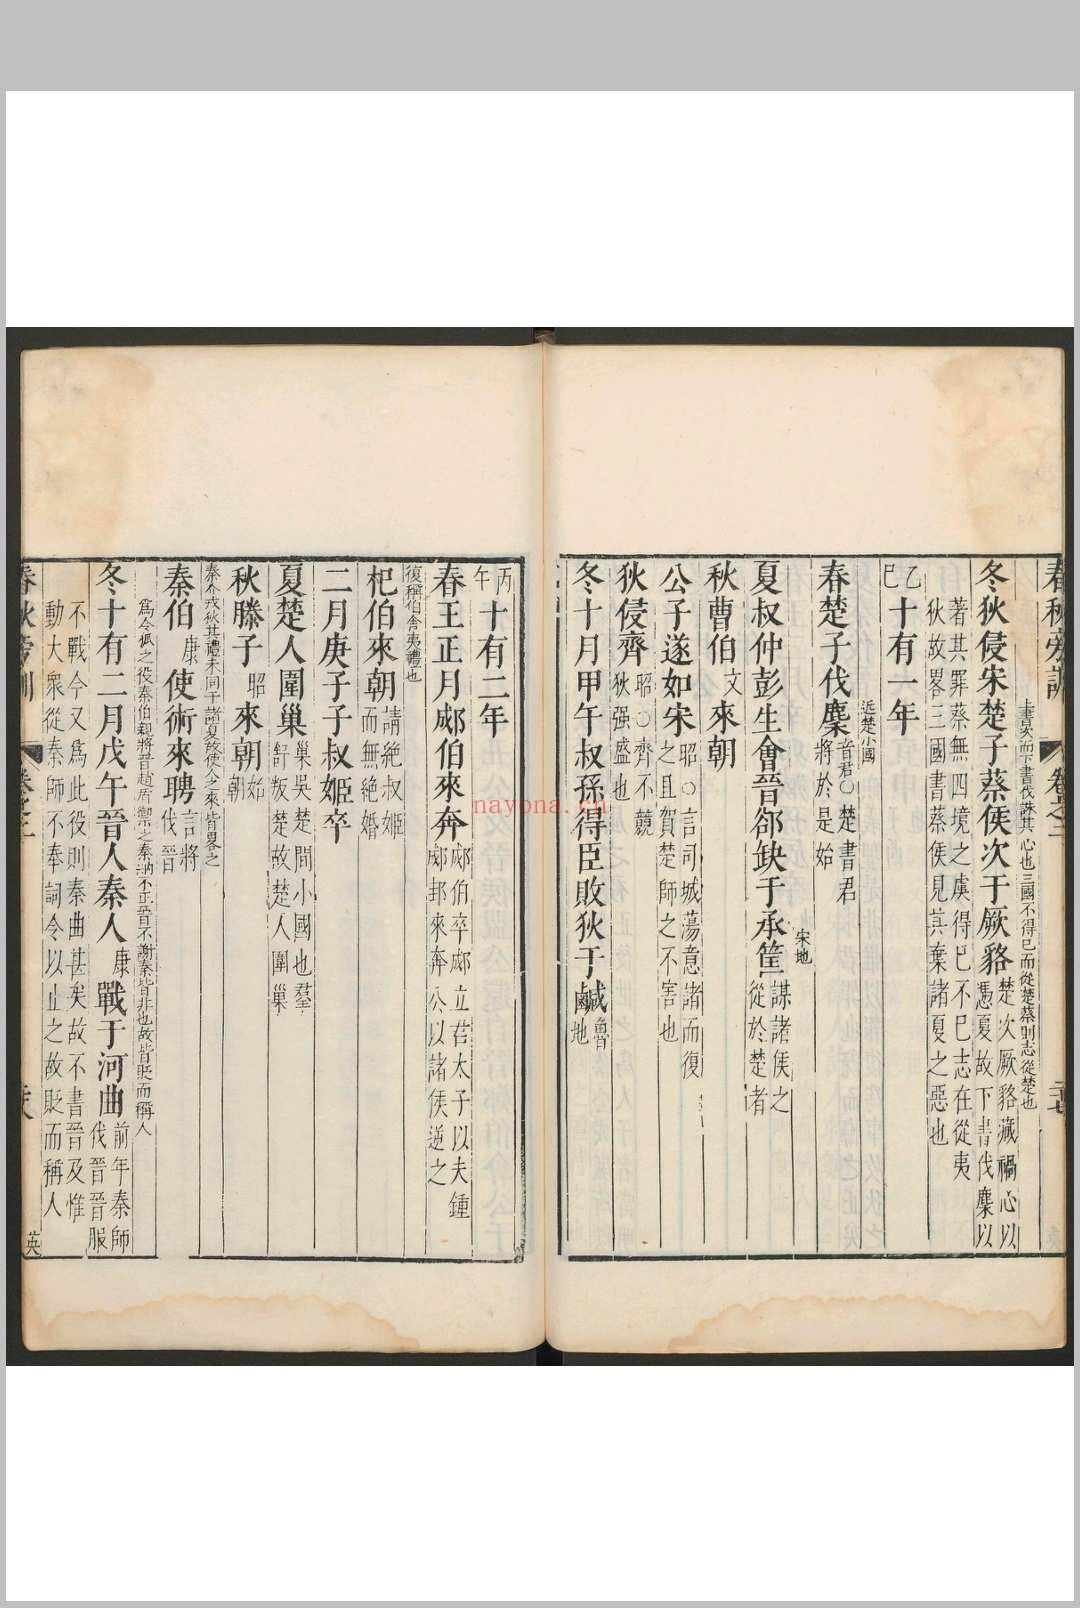 春秋旁訓 卷之二 二十七
上書次而下書伐誅其心也三國不得已而從楚蔡則志從楚也
冬狄侵宋楚子蔡侯次于厥貉楚次厥貉藏禍心以憑夏故下書伐麇以
著其罪蔡無四境之虞得已不已志在從夷
狄故畧三國書蔡侯見其棄諸夏之惡也
乙巳十有一年
近楚小國
春楚子伐麇音君○楚書君將於是始
宋地
夏叔仲彭生會晉郤缺于承筐謀諸侯之從於楚者
秋曹伯文來朝
公子遂如宋昭○言司城蕩意諸而復之且賀楚師之不害也
狄侵齊昭○齊不競狄强盛也
冬十月甲午叔孫得臣敗狄于鹹魯地
丙午十有二年
春王正月郕伯來奔郕伯卒郕立君太子以夫鍾郕邽來奔公以諸侯逆之
復稱伯舍夷禮也
杞伯來朝請絶叔姬而無絶婚
二月庚子子叔姬卒
夏楚人圍巢巢吳楚間小國也羣舒叛楚故楚人圍巢
秋滕子昭來朝始朝
秦介戎狄其禮未同于諸夏故使人之來皆畧之
秦伯康使術來聘言將伐晉
爲令狐之役秦伯親將晉趙盾禦之秦納不正晉不謝秦皆非也故皆貶而稱人
冬十有二月戊午晉人秦人康戰于河曲前年秦師伐晉晉服
不戰今又爲此役則秦曲甚矣故不書晉及惟
動大衆從秦師不奉詞令以止之故貶而稱人
春秋旁訓 卷之二 英
nayona.cn